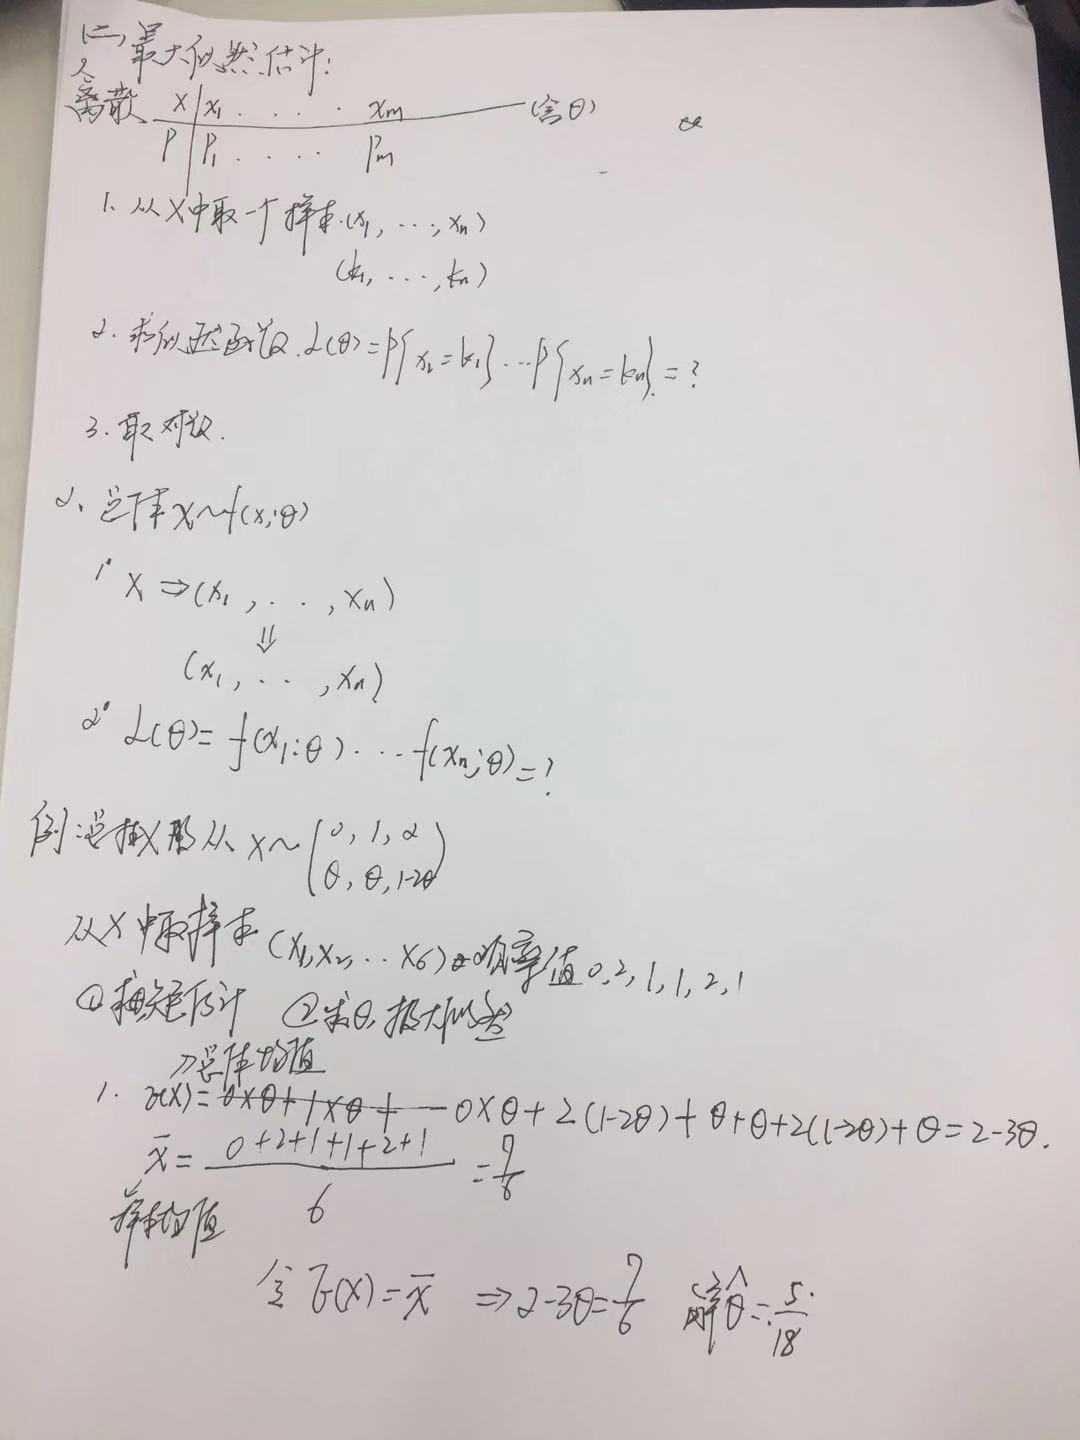 (二)、最大似然估计:
离散 X | x₁ . . . . xₘ (含θ)
P | P₁ . . . . Pₘ
1. 从X中取一个样本(x₁, ..., xₙ)
(k₁, ..., kₙ)
2. 求似然函数 L(θ)=P{x₁=k₁}...P{xₙ=kₙ}=?
3. 取对数.
2、总体X~f(x;θ)
1° X ⇒(x₁, . . , xₙ)
⇓
(x₁, . . , xₙ)
2° L(θ)= f(x₁;θ)...f(xₙ;θ)=?
例:总体X服从 X~(0, 1, 2
θ, θ, 1-2θ)
从X中取样本(x₁,x₂,..x₆) 观察值0,2,1,1,2,1
①求矩估计 ②求θ极大似然
↗总体均值
1. E(X)=0×θ+1×θ+ 0×θ+2(1-2θ)+θ+θ+2(1-2θ)+θ=2-3θ.
x̄= (0+2+1+1+2+1)/6 = 7/6
样本均值
令E(X)=x̄ ⇒2-3θ=7/6 解θ̂=5/18